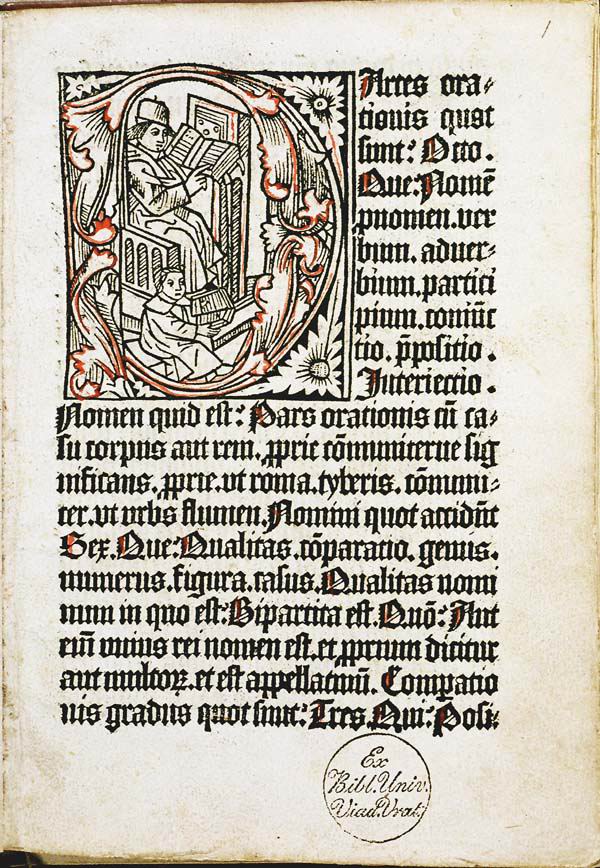 1
PArtes ora⸗
tionis quot
sunt: Octo.
Que: Nomē
ꝓnomen.ver
bium. aduer⸗
bium.partici
pium.coniūc
tio. p̄positio.
Interiectio.
Nomen quid est: Pars orationis cū ca⸗
su corpus aut rem. ꝓprie cōmuniterue sig
nificans. ꝓprie.vt roma.tyberis. cōmuni⸗
ter.vt vrbs flumen. Nomini quot accidūt
Sex. Que: Qualitas. cōparatio. genus.
numerus. figura. casus. Qualitas nomi
num in quo est: Bipartita est. Quō: Aut
eim̄ vnius rei nomen est. et ꝓprium dicitur
aut multoꝝ. et est appellatiuū. Comparatio
nis gradus quot sunt: Tres. Qui: Posi⸗
Ex
Bibl. Univ.
Viad. Vrat.